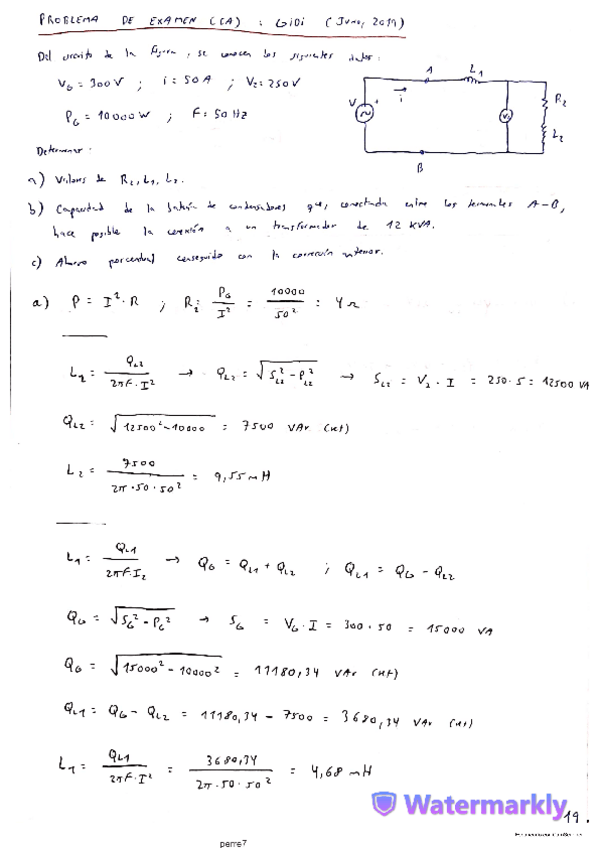 PROBLEMA DE EXAMEN (CA) : GIDI (Junio, 2019)
Del circuito de la figura, se conocen los siguientes datos:
VG = 300V ; i = 50A ; V2 = 250V
PG = 10000W ; F = 50Hz
A L1
V + i V2 R2
L2
B
Determinar:
a) Valores de R2, L1, L2.
b) Capacidad de la batería de condensadores que, conectada entre los terminales A-B,
hace posible la conexión a un transformador de 12 KVA.
c) Ahorro porcentual conseguido con la corrección anterior.
a) P = I² · R ; R2 = PG / I² = 10000 / 50² = 4 Ω
L2 = QL2 / 2πF·I² → QL2 = √SL2² - PL2² → SL2 = V2 · I = 250 · 5 = 12500 VA
QL2 = √12500² - 10000 = 7500 VAr (ind)
L2 = 7500 / 2π·50·50² = 9,55 mH
L1 = QL1 / 2πF·I2 → QG = QL1 + QL2 ; QL1 = QG - QL2
QG = √SG² - PG² → SG = VG · I = 300 · 50 = 15000 VA
QG = √15000² - 10000² = 11180,34 VAr (ind)
QL1 = QG - QL2 = 11180,34 - 7500 = 3680,34 VAr (ind)
L1 = QL1 / 2πF·I² = 3680,34 / 2π·50·50² = 4,68 mH
Watermarkly
19.
perre7